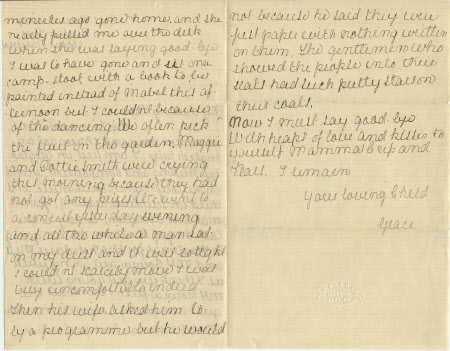 minutes ago gone home and she
nearly pulled me over the desk
when she was saying good-bye
I was to have gone and sit on a
camp-stool with a book to be
painted instead of Mabel this af
ternoon but I couldn't because
of the dancing. We often pick
the fruit in the garden. Maggie
and Dottie Smith were crying
this morning because they had
not got any prizes. We went to
a concert yesterday evening
and all the while a man sat
on my dress and it was so tight
I could nt scarcely move I was
very uncomfortable indeed
Then his wife asked him to
by a programme but he would
not because he said they were
full paper with nothing written
on them. The gentlemen who
showed the people into their
seats had such pretty stars on
their coats.
Now I must say good-bye
With heaps of love and kisses to
yourself Mamma and
Nall. I remain
Your loving Child
Grace